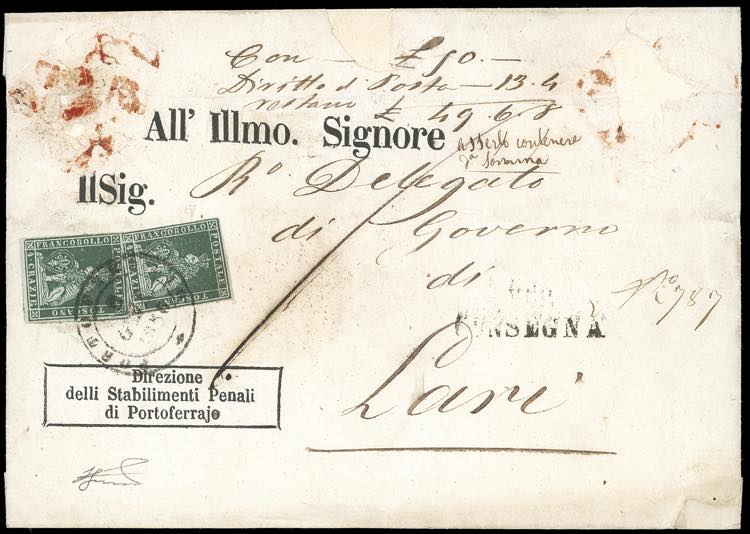 Con — £ 50. —
Diritto di Posta — 13. 4
restano £ 49. 6. 8
All' Illmo. Signore
asserto contenere
da somma
IlSig.
Ro. Delegato
di Governo
di
FRANCOBOLLO POSTALE TOSCANO 4 CRAZIE
FRANCOBOLLO POSTALE TOSCANO 4 CRAZIE
No 787
CONSEGNA
Lari
Direzione
delli Stabilimenti Penali
di Portoferrajo